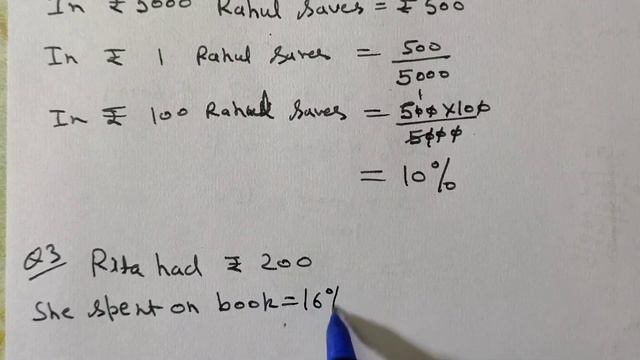 In ₹ 5000 Rahul saves = ₹ 500
In ₹ 1 Rahul saves = 500/5000
In ₹ 100 Rahul saves = 500×100/5000
= 10%
Q3 Rita had ₹ 200
She spent on book = 16%